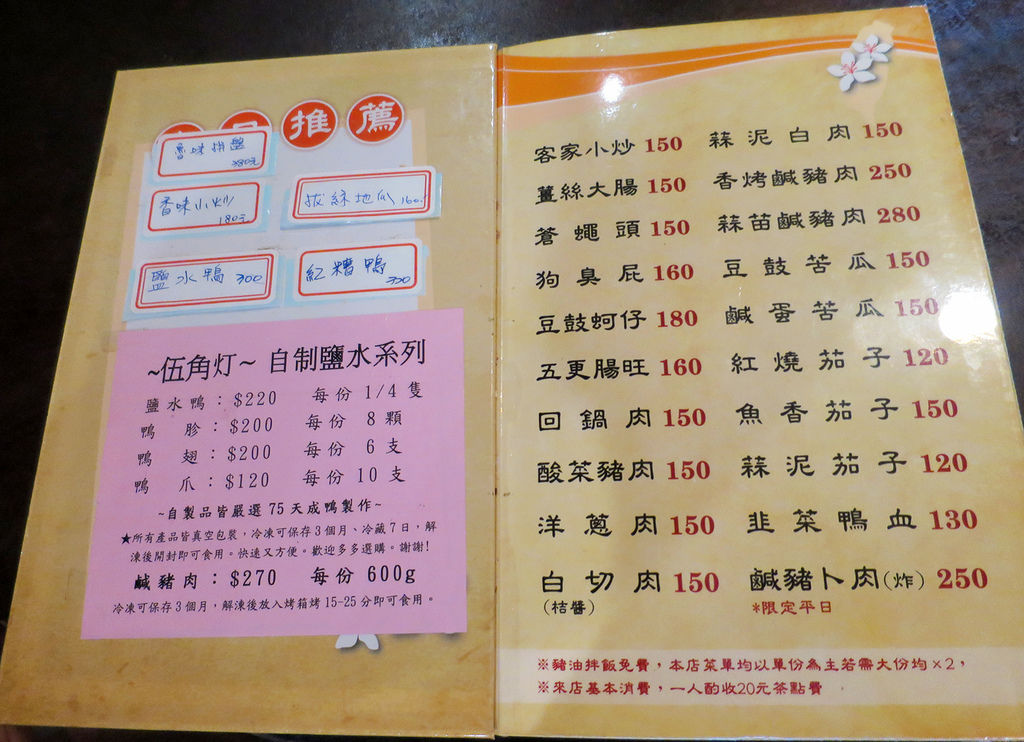 推薦
魯味拼盤
380元
香味小炒
180元
拔絲地瓜 160.
鹽水鴨 300
紅糟鴨
350
~伍角灯~ 自制鹽水系列
鹽水鴨：$220 每份 1/4 隻
鴨 胗：$200 每份 8 顆
鴨 翅：$200 每份 6 支
鴨 爪：$120 每份 10 支
~自製品皆嚴選 75 天成鴨製作~
★所有產品皆真空包裝，冷凍可保存3個月、冷藏7日，解
凍後開封即可食用。快速又方便。歡迎多多選購。謝謝!
鹹豬肉：$270 每份 600g
冷凍可保存3個月，解凍後放入烤箱烤15-25分即可食用。
客家小炒 150 蒜泥白肉 150
薑絲大腸 150 香烤鹹豬肉 250
蒼蠅頭 150 蒜苗鹹豬肉 280
狗臭屁 160 豆鼓苦瓜 150
豆鼓蚵仔 180 鹹蛋苦瓜 150
五更腸旺 160 紅燒茄子 120
回鍋肉 150 魚香茄子 150
酸菜豬肉 150 蒜泥茄子 120
洋蔥肉 150 韭菜鴨血 130
白切肉 150 鹹豬卜肉(炸) 250
(桔醬) *限定平日
※豬油拌飯免費，本店菜單均以單份為主若需大份均×2，
※來店基本消費，一人酌收20元茶點費